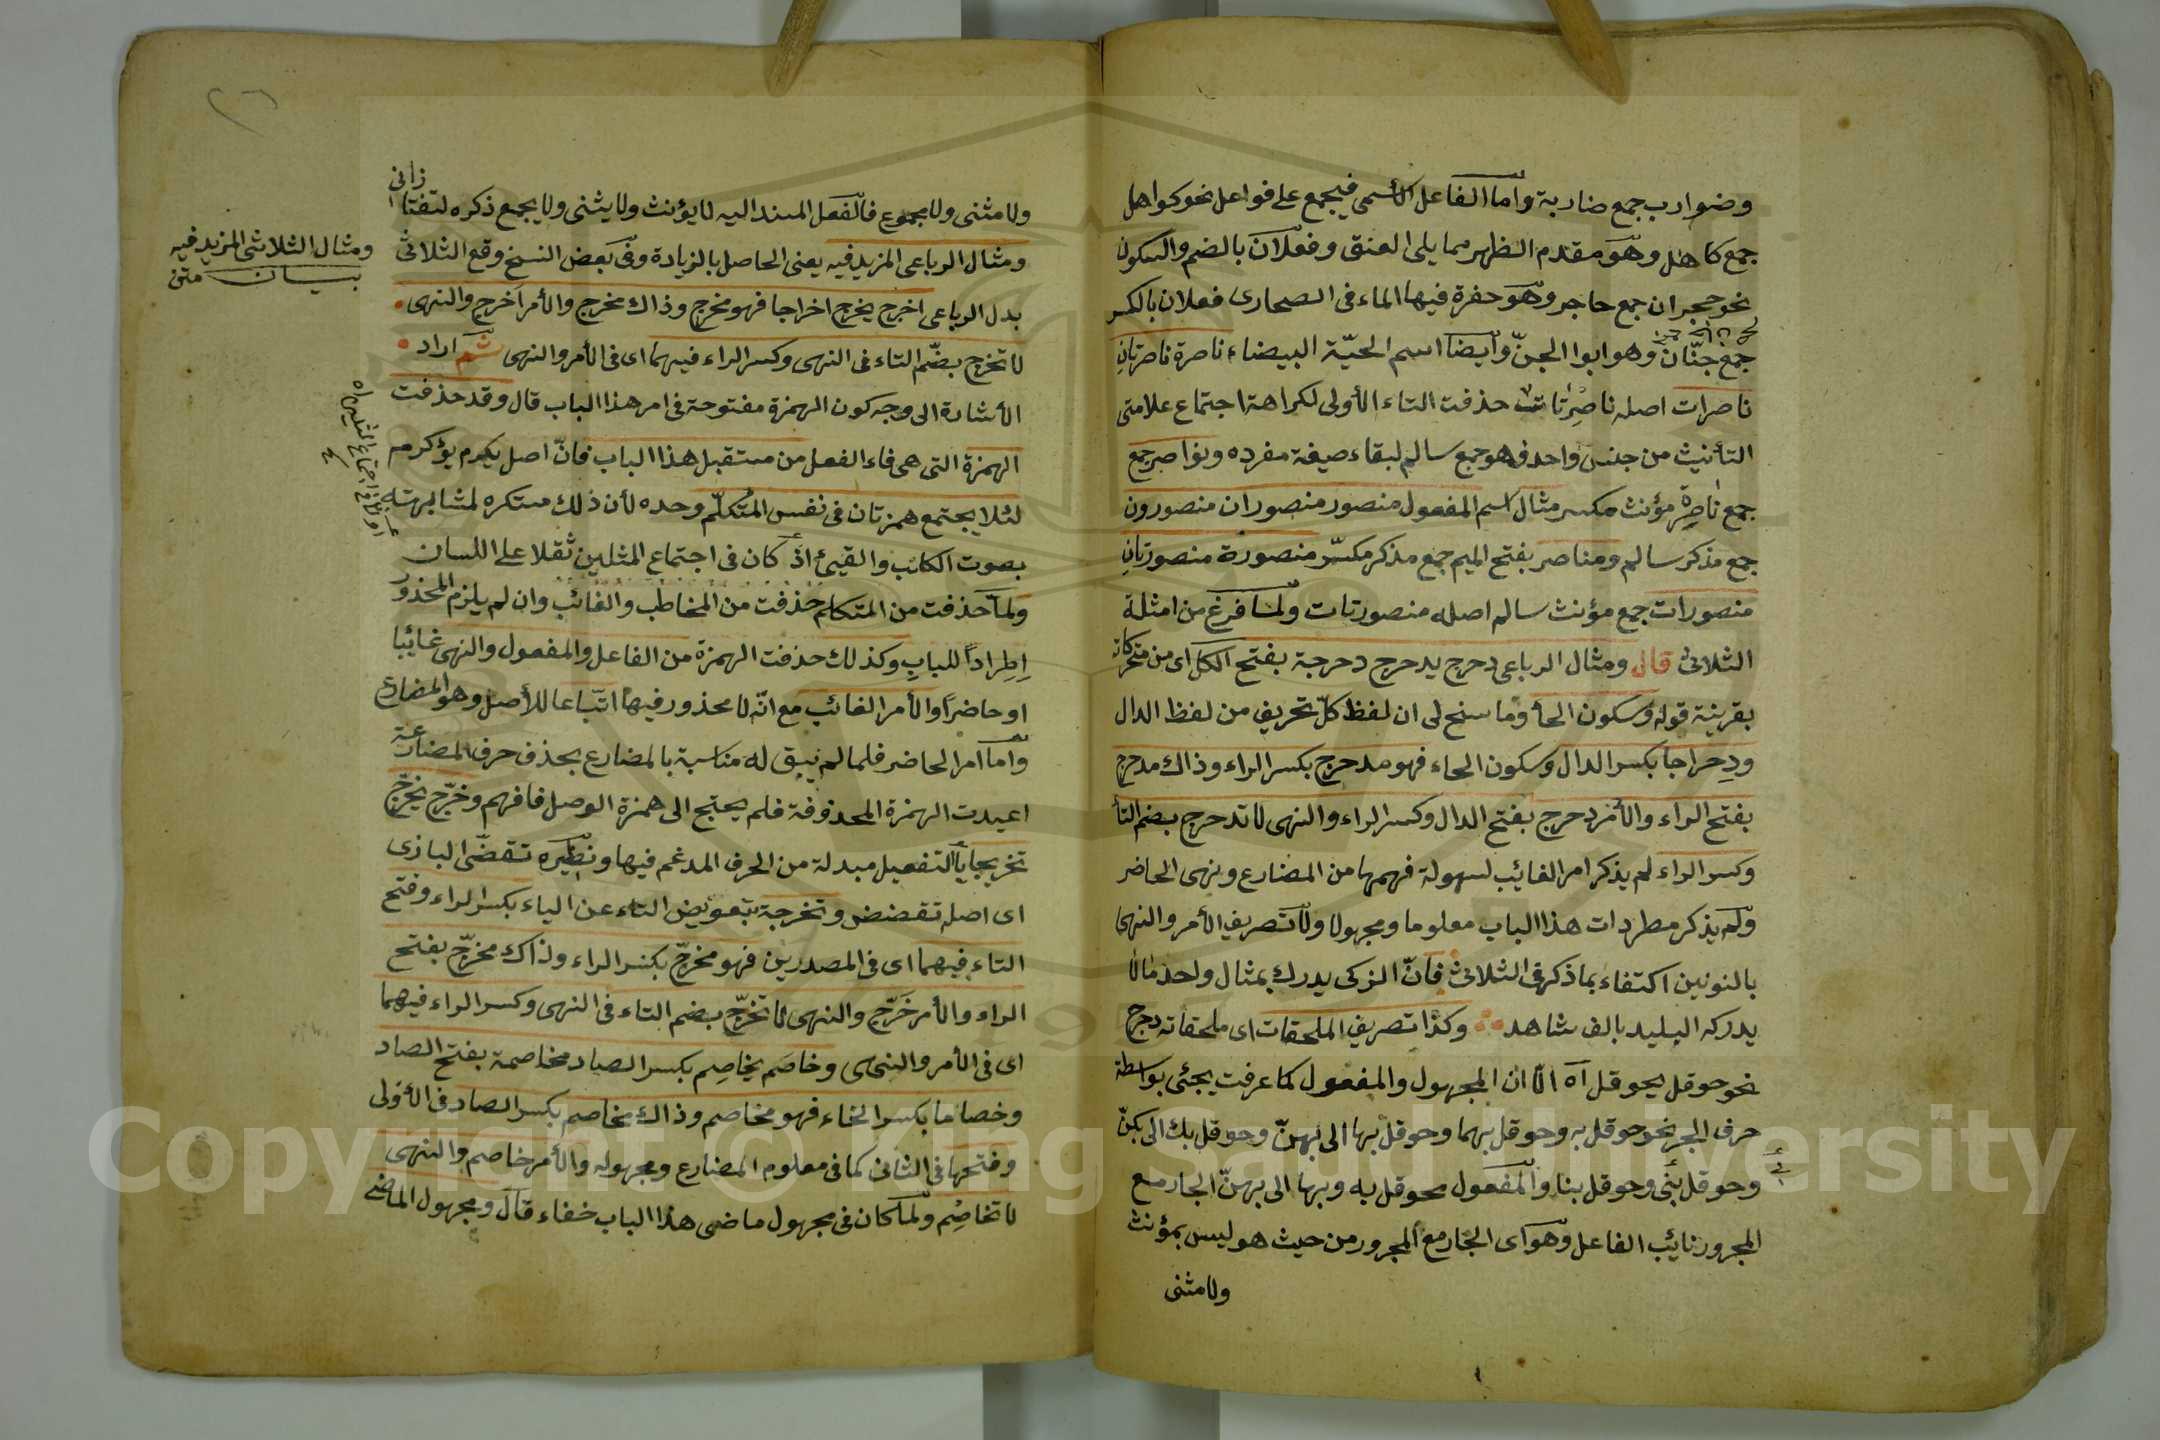 وضوارب جمع ضاربة واما الفاعل الأسمى فيجمع على فواعل نحو كواهل
جمع كاهل وهو مقدم الظهر مما يلى العنق وفعلان بالضم والسكون
نحو حجران جمع حاجر وهو حفرة فيها الماء فى الصحارى فعلان بالكسر
جمع جنّان وهو ابوا الجنّ وأيضا اسم الحيّة البيضاء ناصرة ناصرتانِ
ناصرات اصله ناصرتات حذفت التاء الأولى لكراهة اجتماع علامتى
التأنيث من جنس واحد فهو جمع سالم لبقاء صيغة مفرده ونواصر جمع
جمع ناصِرة مؤنث مكسر مثال اسم المفعول منصور منصوران منصورون
جمع مذكر سالم ومناصر بفتح الميم جمع مذكر مكسّر منصورة منصورتانِ
منصورات جمع مؤنث سالم اصله منصورتات ولما فرغ من امثلة
الثلاثى قال ومثال الرباعى دحرج يدحرج دحرجة بفتح الكل اى من متحركاته
بقرينة قوله وسكون الحأ وما سنح لى ان لفظ كلّ تحريف من لفظ الدال
ودِحراجا بكسر الدال وسكون الحاء فهو مدحرج بكسر الراء وذاك مدحرج
بفتح الراء والأمر دحرج بفتح الدال وكسر الراء والنهى لا تدحرج بضم التأ
وكسر الراء لم يذكر امر الغائب لسهولة فهمها من المضارع ونهى الحاضر
ولم يذكر مطردات هذا الباب معلوما ومجهولا ولا تصريف الأمر والنهى
بالنونين اكتفاء بما ذكر فى الثلاثى فانّ الزكى يدرك بمثال واحد مالا
يدركه البليد بالف شاهد وكذا تصريف الملحقات اى ملحقاته دحرج
نحو حوقل يحوقل آه الّا ان المجهول والمفعول كما عرفت يجئى بواسطة
حرف الجر نحو حوقل به وحوقل بهما وحوقل بها الى بهنّ وحوقل بك الى بكنّ
وحوقل بى وحوقل بنا والمفعول محوقل به وبها الى بهنّ الجار مع
المجرور نائب الفاعل وهو اى الجار مع المجرور من حيث هو ليس بمؤنث
ولا مثنى
ولا مثنى ولا مجموع فالفعل المسند اليه لا يؤنث ولا يثنى ولا يجمع ذكره لتفتازانى
ومثال الرباعى المزيد فيه يعنى الحاصل بالزيادة وفى بعض النسخ وقع الثلاثى
ومثال الثلاثى المزيد فيه
بدل الرباعى اخرج يخرج اخراجا فهو مخرج وذاك مخرج والأمر اخرج والنهى
لا تخرج بضم التاء فى النهى وكسر الراء فيهما اى فى الأمر والنهى ثم اراد
الأشارة الى وجه كون الهمزة مفتوحة فى امر هذا الباب قال وقد حذفت
الهمزة التى هى فاء الفعل من مستقبل هذا الباب فانّ اصل يكرم يؤكرم
لئلا يجتمع همزتان فى نفس المتكلّم وحده لأن ذلك مستكره لمشابهته
بصوت الكلب والقيئ اذ كان فى اجتماع المثلين ثقلا على اللسان
ولما حذفت من المتكلم حُذفت من المخاطب والغائب وان لم يلزم المحذور
اِطِراداً للبابِ وكذلك حذفت الهمزة من الفاعل والمفعول والنهى غائبا
او حاضرًا والأمر الغائب مع انّه لا محذور فيها اتّباعا للأصل وهو المضارع
واما امر الحاضر فلما لم يبق له مناسبة بالمضارع بحذف حرف المضارعة
اعيدت الهمزة المحذوفة فلم يحتج الى همزة الوصل فافهم وخرّج يخرّج
تخريجا يأ التفعيل مبدلة من الحرف المدغم فيها ونظيره تقضّى البازى
اى اصله تقضض وتخرجة بتعويض التاء عن الياء بكسر الراء وفتح
التاء فيهما اى فى المصدرين فهو مخرّج بكسر الراء وذاك مخرّج بفتح
الراء والأمر خَرّج والنهى لا تخرّج بضم التاء فى النهى وكسر الراء فيهما
اى فى الأمر والنهى وخاصَم يخاصِم بكسر الصاد مخاصمة بفتح الصاد
وخصاما بكسر الخاء فهو مخاصم وذاك مخاصم بكسر الصاد فى الأولى
وفتحها فى الثانى كما فى معلوم المضارع ومجهوله والأمر خاصم والنهى
لا تخاصِم ولما كان فى مجهول ماضى هذا الباب خفاء قال ومجهول الماضى
Copyright © King Saud University